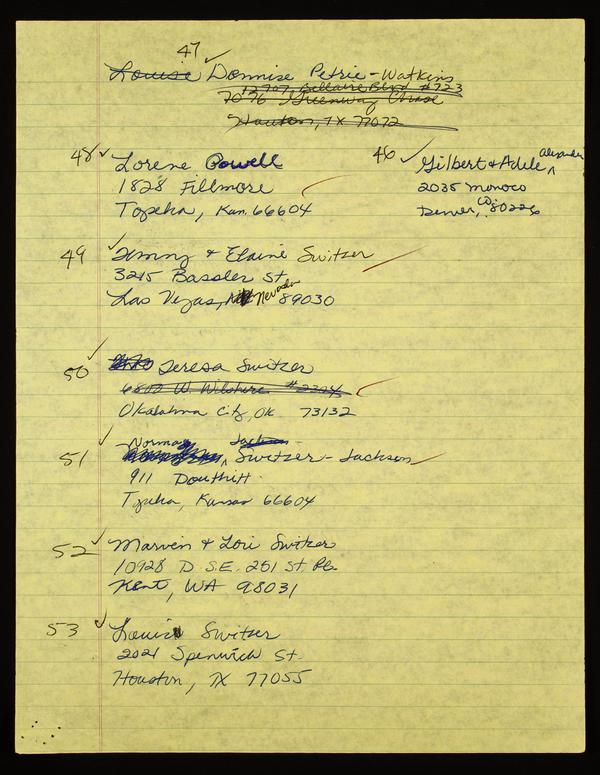 47 ✓
Louise Donnise Petrie-Watkins
12707 Bellaire Blvd #723
7076 Greenway Chase
Houston, TX 77072
48 ✓ Lorene Powell
1828 Fillmore
Topeka, Kan. 66604
46 ✓ Gilbert & Adele Alexander
2035 Monoco
Denver, Co. 80226
49 ✓ Jimmy & Elaine Switzer
3215 Bassler St
Las Vegas, Nevada 89030
50 ✓ Teresa Switzer
6802 W. Wilshire #2274
Oklahoma City, OK 73132
51 ✓ Norma Jackson
Switzer-Jackson
911 Douthitt
Topeka, Kansas 66604
52 ✓ Marvin & Lori Switzer
10928 D S.E. 251 St Pl.
Kent, WA 98031
53 ✓ Louis Switzer
2021 Spenwick St.
Houston, TX 77055